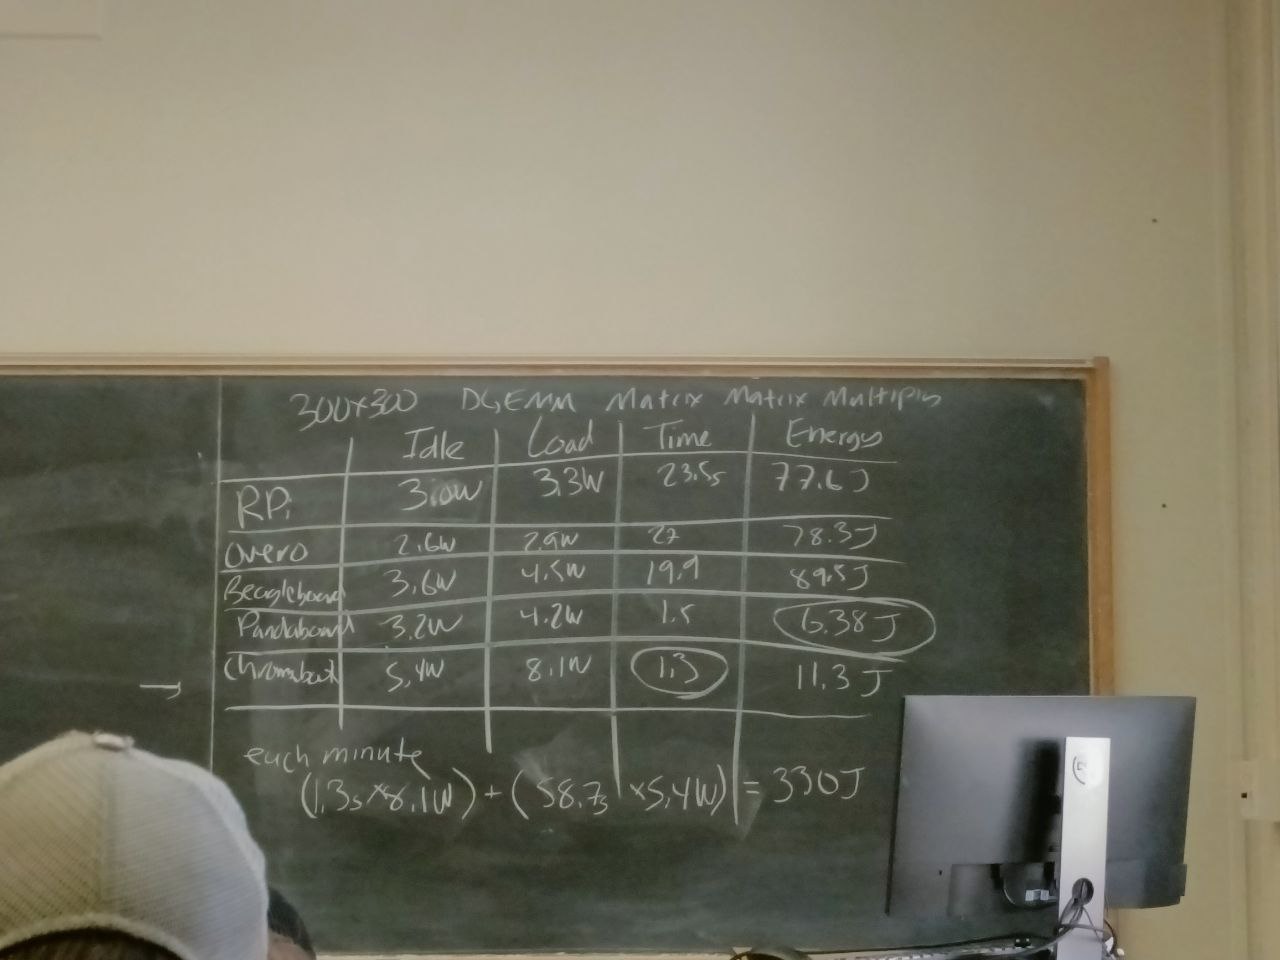 300x300 DGEMM Matrix Matrix Multiply
Idle Load Time Energy
RPi 3.0W 3.3W 23.5s 77.6J
Overo 2.6W 2.9W 27 78.3J
Beagleboard 3.6W 4.5W 19.9 89.5J
Pandaboard 3.2W 4.2W 1.5 6.38J
Chromebook 5.4W 8.1W 1.3 11.3J
each minute
(1.3s x 8.1W) + (58.7s x 5.4W) = 330J